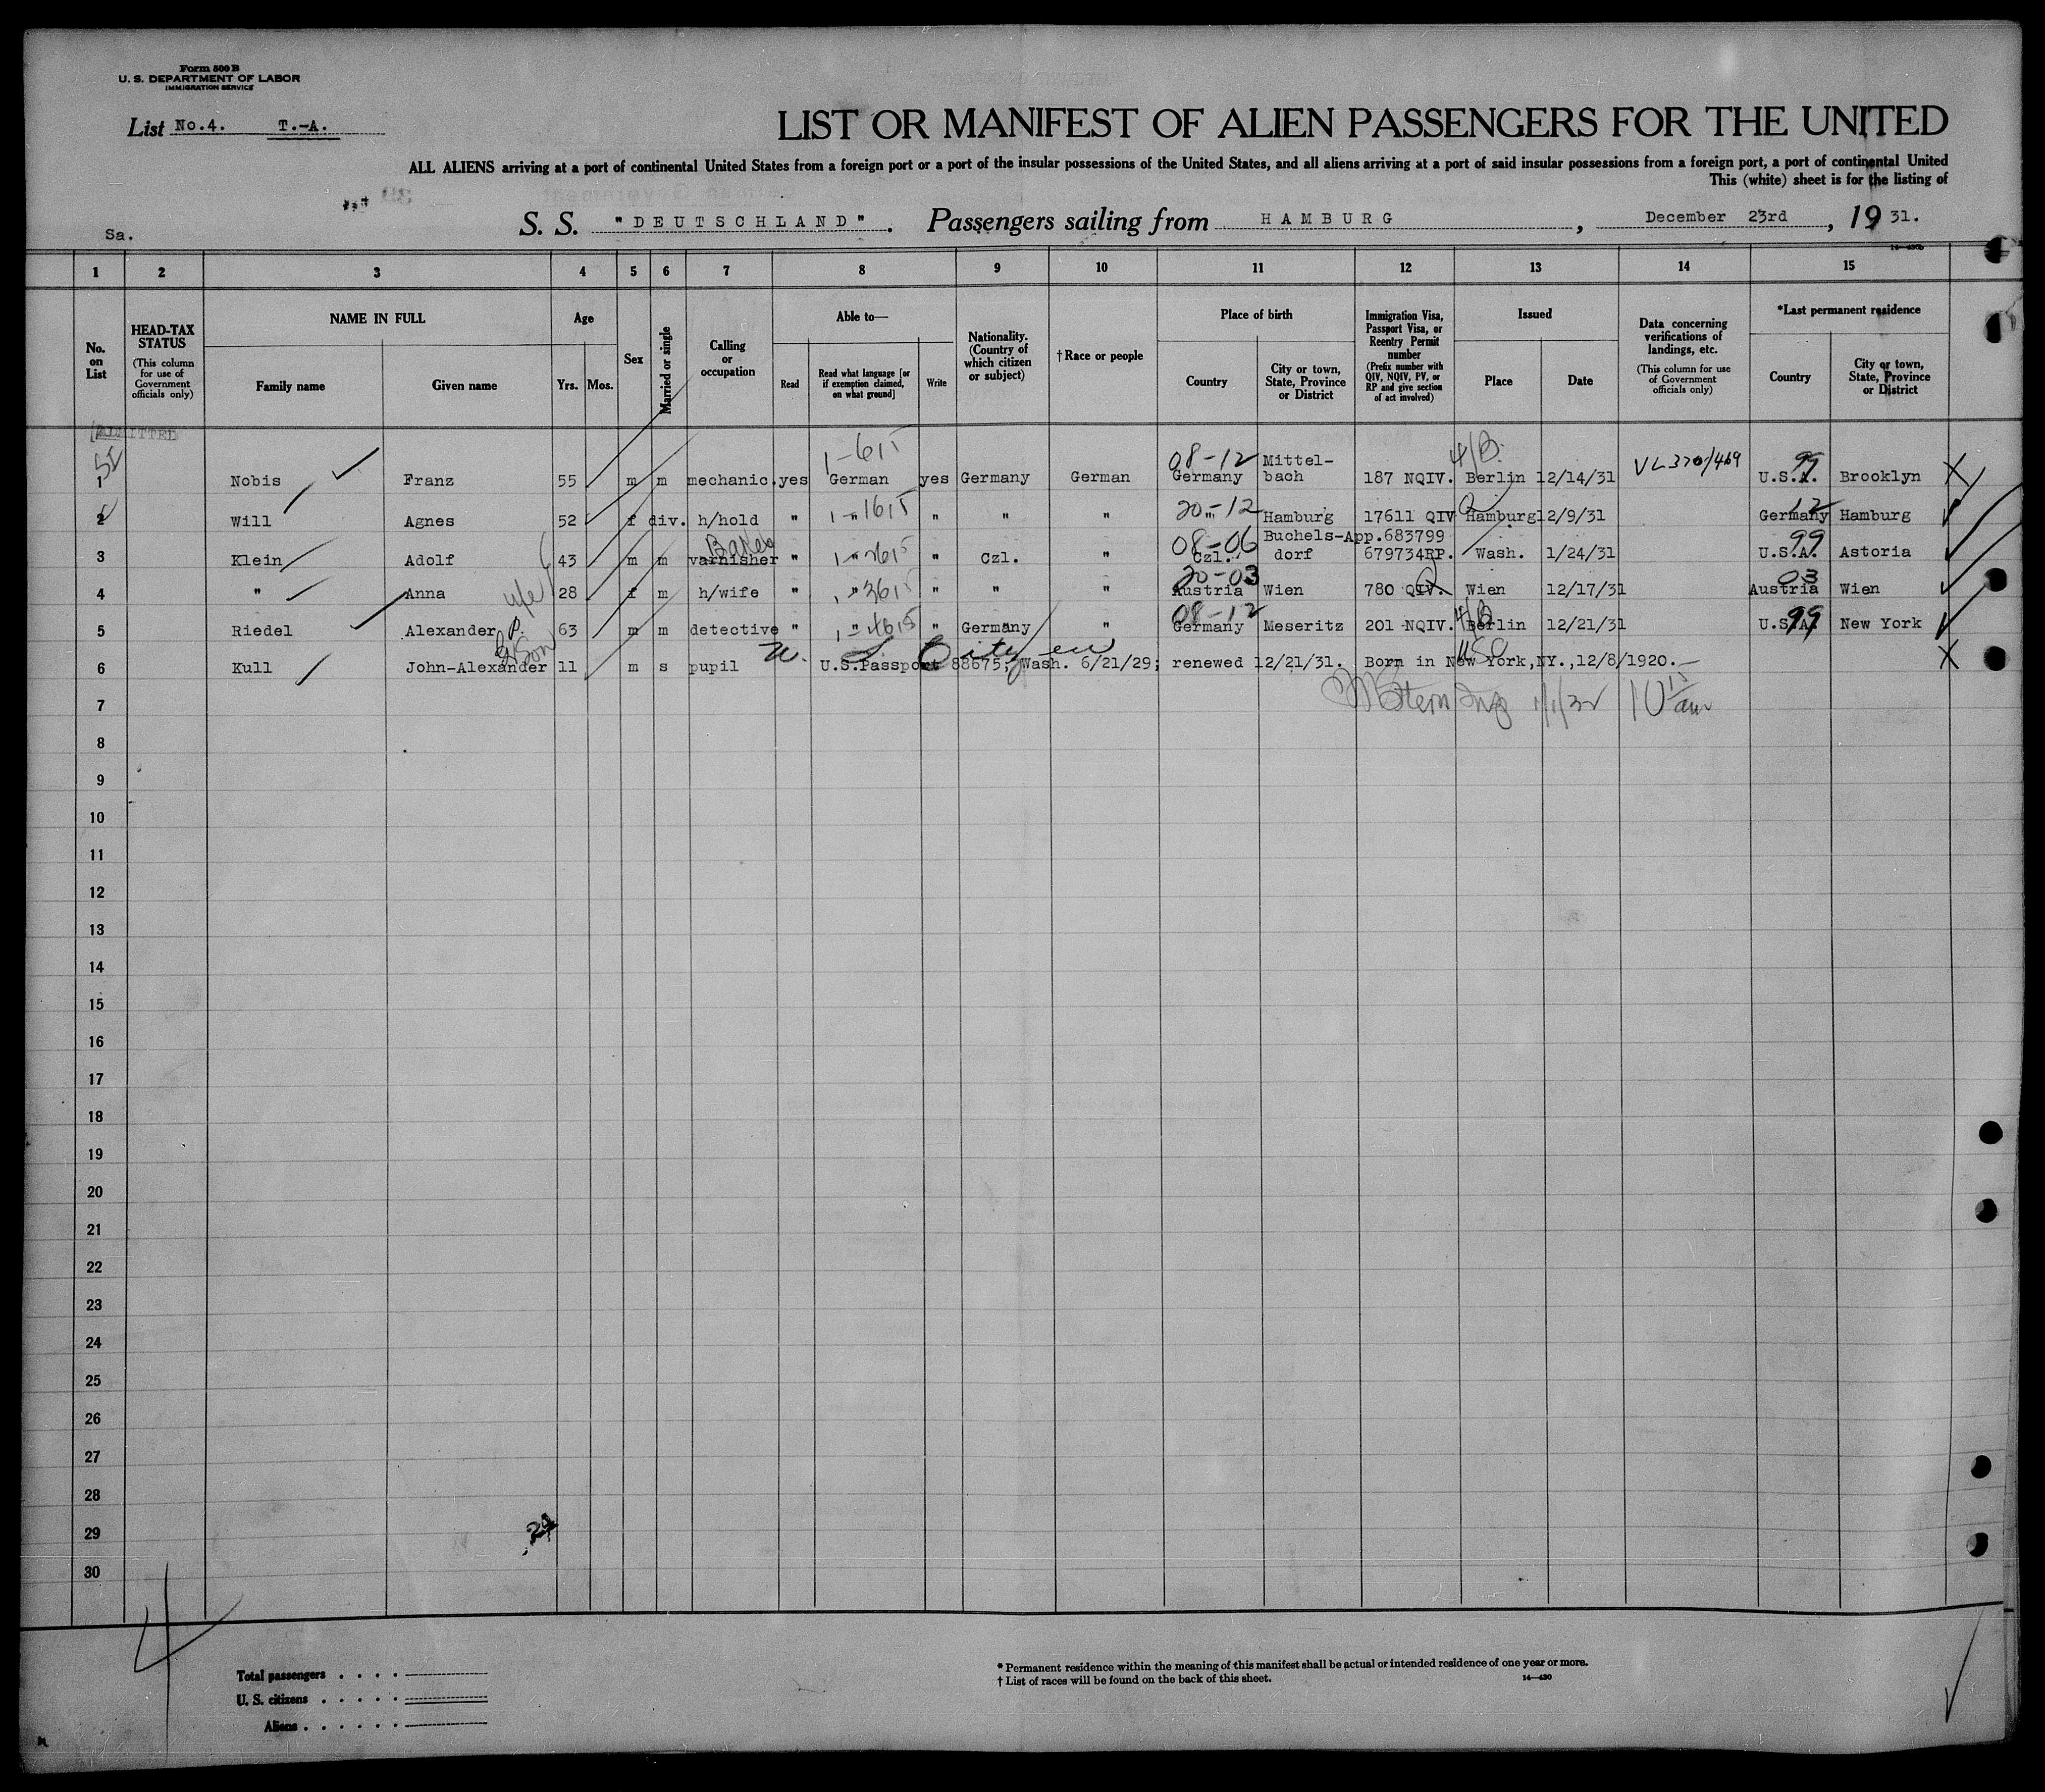 Form 500 B
U. S. DEPARTMENT OF LABOR
IMMIGRATION SERVICE
List No.4. T.-A.
LIST OR MANIFEST OF ALIEN PASSENGERS FOR THE UNITED
ALL ALIENS arriving at a port of continental United States from a foreign port or a port of the insular possessions of the United States, and all aliens arriving at a port of said insular possessions from a foreign port, a port of continental United
This (white) sheet is for the listing of
Sa.
S. S. "DEUTSCHLAND". Passengers sailing from HAMBURG, December 23rd, 1931.
1 2 3 4 5 6 7 8 9 10 11 12 13 14 15
No. on List
HEAD-TAX STATUS (This column for use of Government officials only)
NAME IN FULL
Family name
Given name
Age
Yrs. Mos.
Sex
Married or single
Calling or occupation
Able to—
Read
Read what language [or if exemption claimed, on what ground]
Write
Nationality. (Country of which citizen or subject)
† Race or people
Place of birth
Country
City or town, State, Province or District
Immigration Visa, Passport Visa, or Reentry Permit number (Prefix number with QIV, NQIV, PV, or RP and give section of act involved)
Issued
Place
Date
Data concerning verifications of landings, etc. (This column for use of Government officials only)
*Last permanent residence
Country
City or town, State, Province or District
ADMITTED
SI
1-615 08-12 4/B. VL 370/469 99
1 Nobis Franz 55 m m mechanic. yes German yes Germany German Germany Mittel-bach 187 NQIV. Berlin 12/14/31 U.S.A. Brooklyn X
1-1615 20-12 Q 12
2 Will Agnes 52 f div. h/hold " " " " " " Hamburg 17611 QIV Hamburg 12/9/31 Germany Hamburg
Baker 2615 08-06 99
3 Klein Adolf 43 m m varnisher " " " Czl. " Czl. Buchels-dorf App.683799 679734RP. Wash. 1/24/31 U.S.A. Astoria
wife 3615 20-03 Q 03
4 " Anna 28 f m h/wife " " " " " Austria Wien 780 QIV. Wien 12/17/31 Austria Wien
4615 08-12 4/B 99
5 Riedel Alexander P. 63 m m detective " " " Germany " Germany Meseritz 201 NQIV. Berlin 12/21/31 U.S.A. New York
G Son U. S. Citizen USC
6 Kull John-Alexander 11 m s pupil U.S.Passport 88675; Wash. 6/21/29; renewed 12/21/31. Born in New York,NY.,12/8/1920.- X
7 Stern Insp 1/1/32 10 15 am
8
9
10
11
12
13
14
15
16
17
18
19
20
21
22
23
24
25
26
27
28
29
30
4
Total passengers . . . .
U. S. citizens . . . . .
Aliens . . . . . .
* Permanent residence within the meaning of this manifest shall be actual or intended residence of one year or more.
† List of races will be found on the back of this sheet.
14—430